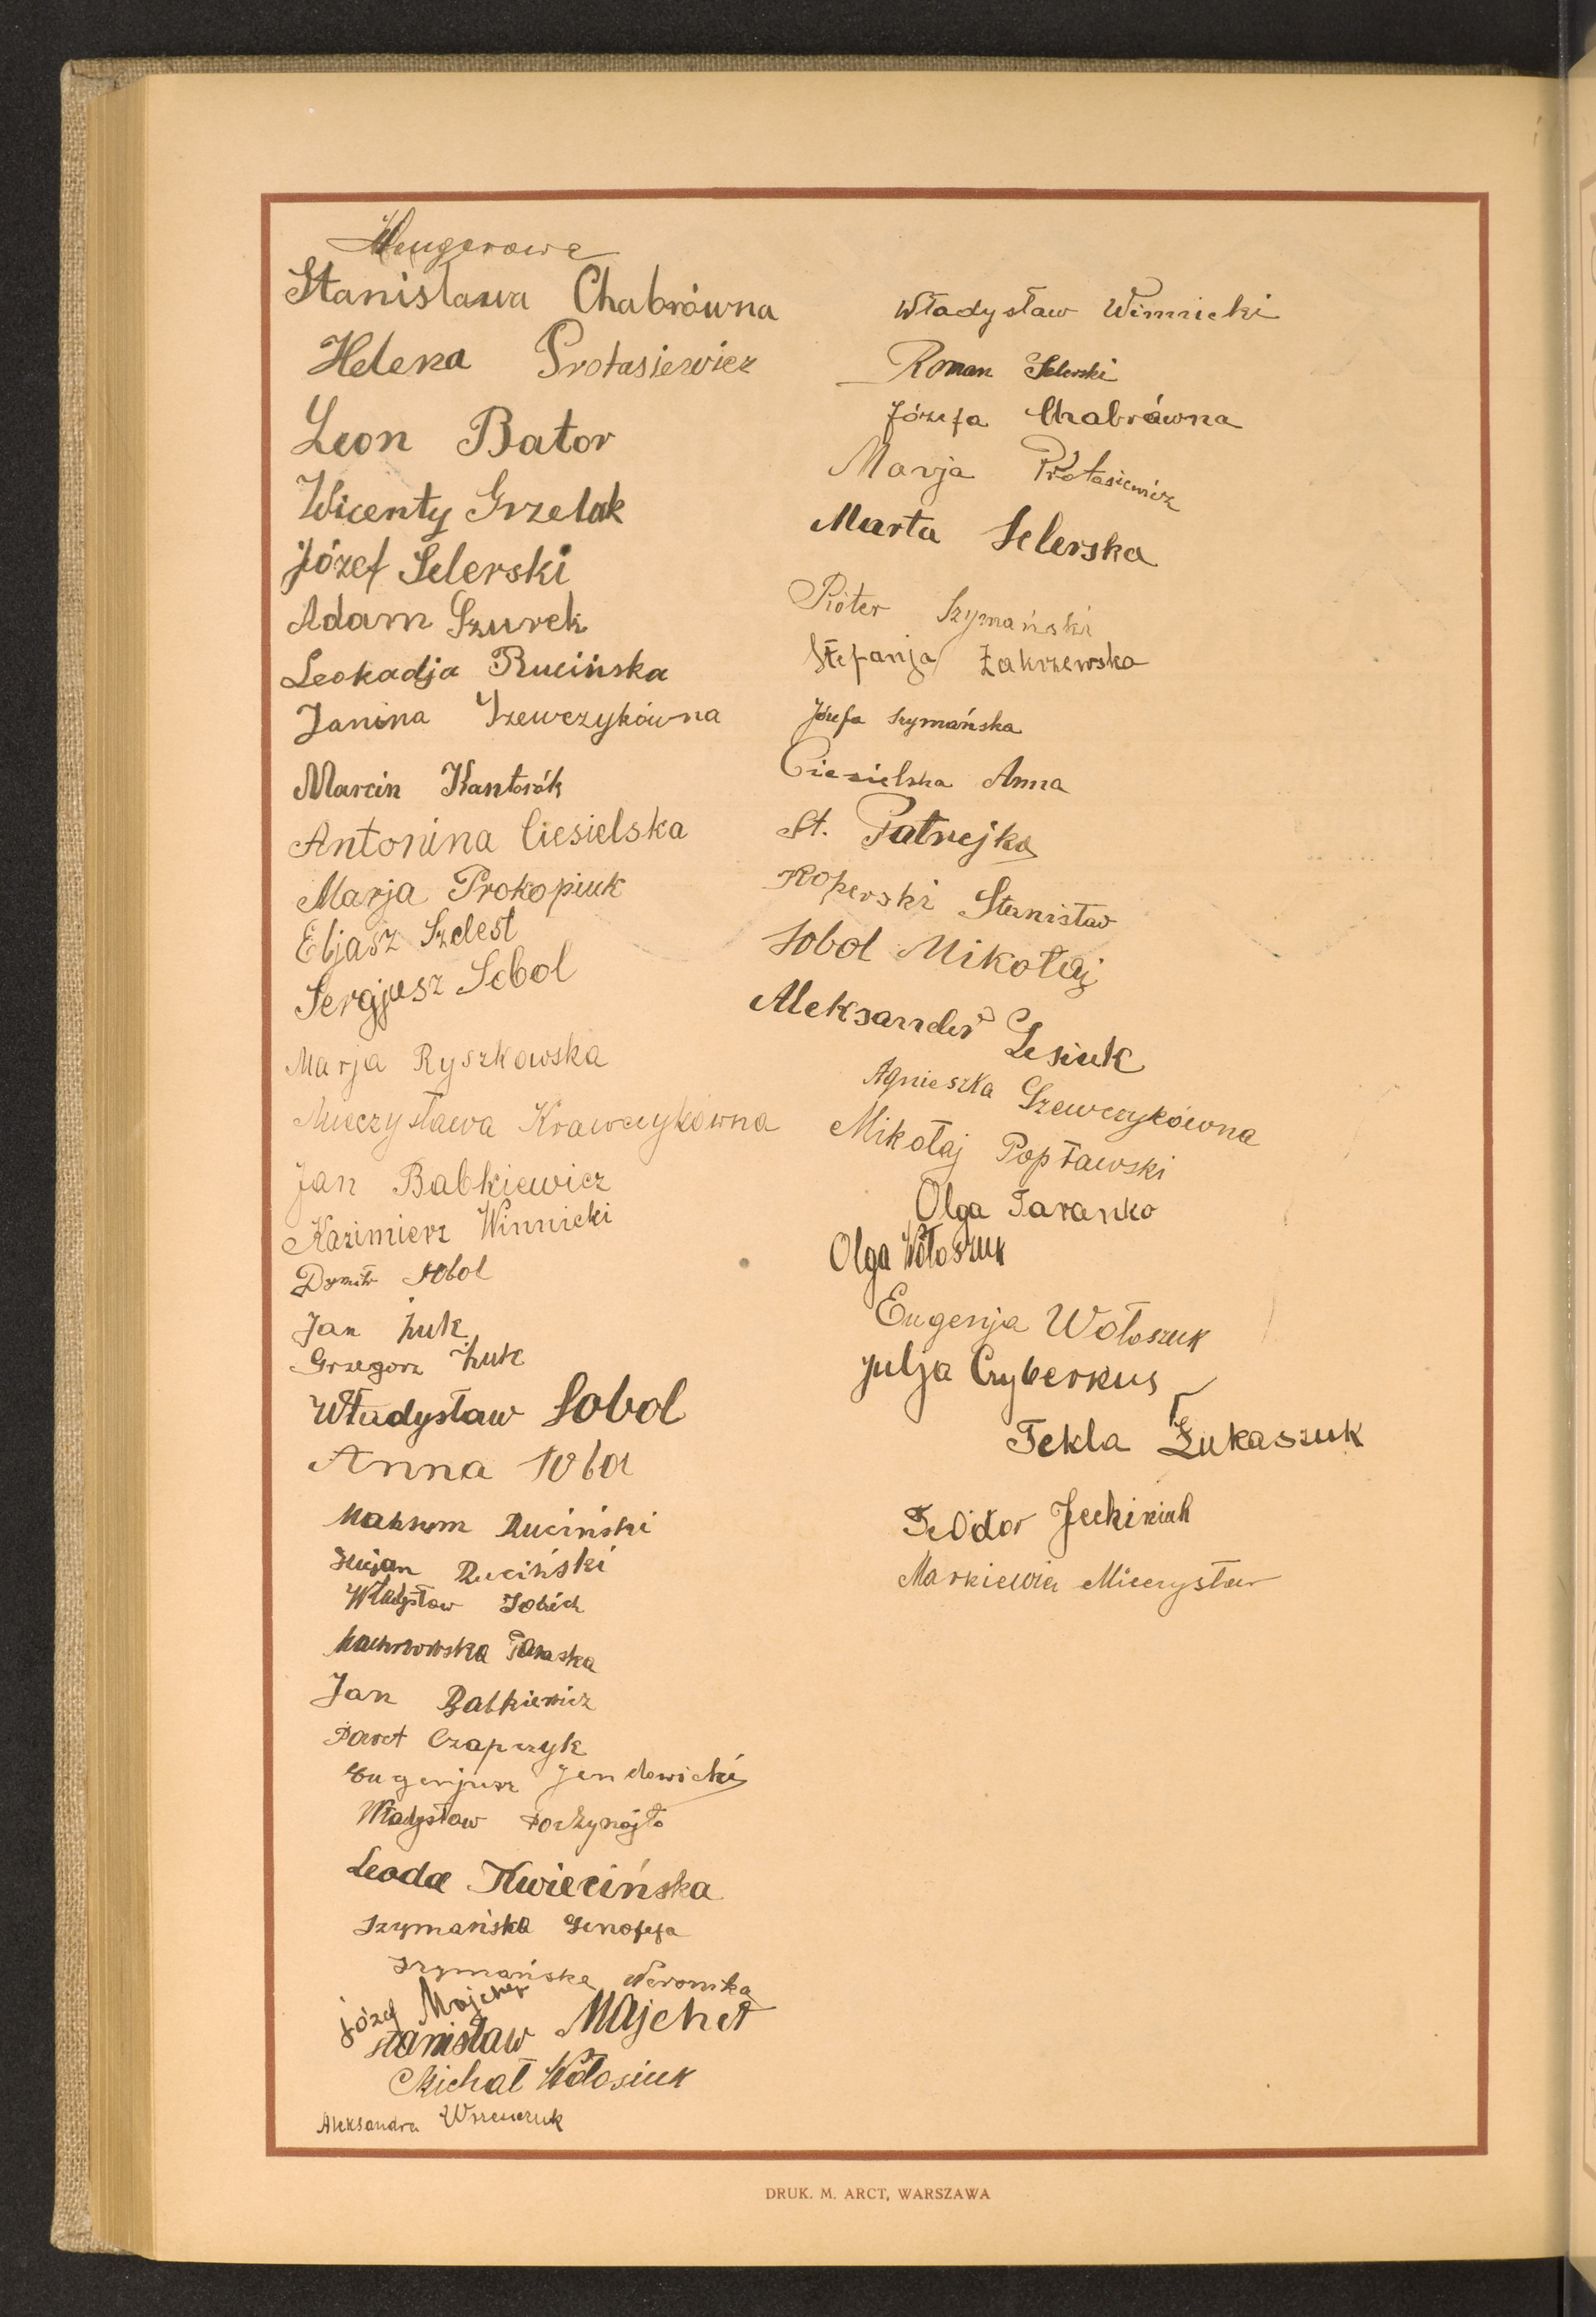 Stanisława Chabrówna
Helena Protasiewicz
Leon Bator
Wicenty Grzelak
Józef Selerski
Adam Szurek
Leokadja Rucińska
Janina Szewczykówna
Marcin Kantorók
Antonina Ciesielska
Marja Prokopiuk
Eljasz Szelest
Sergjusz Sobol
Marja Ryszkowska
Mieczysława Krawczykówna
Jan Babkiewicz
Kazimierz Winnicki
Dymitr Sobol
Jan Żuk
Grzegorz Żuk
Władysław Sobol
Anna Sobol
Ruciński
Lucjan Ruciński
Władysław
Jan Babkiewicz
Paweł Czapczyk
Eugenjusz Jendowicki
Władysław
Leoda Kwiecińska
Szymańska Genofefa
Szymańska Weronika
Józef Majcher
Stanisław Majcher
Michał Wołosiuk
Aleksandra
Władysław Winnicki
Roman Selerski
Józefa Chabrówna
Marja Protasiewicz
Marta Selerska
Pióter Szymański
Stefanja Zakrzewska
Józefa Szymańska
Ciesielska Anna
St. Patrejko
Koperski Stanisław
Sobol Mikołaj
Aleksander Lesiuk
Agnieszka Szewczykówna
Mikołaj Popławski
Olga Taranko
Olga Wołoszuk
Eugenja Wołoszuk
Julja Cyberkus
Tekla Łukaszuk
Teodor
Markiewicz Mieczysław
DRUK. M. ARCT, WARSZAWA